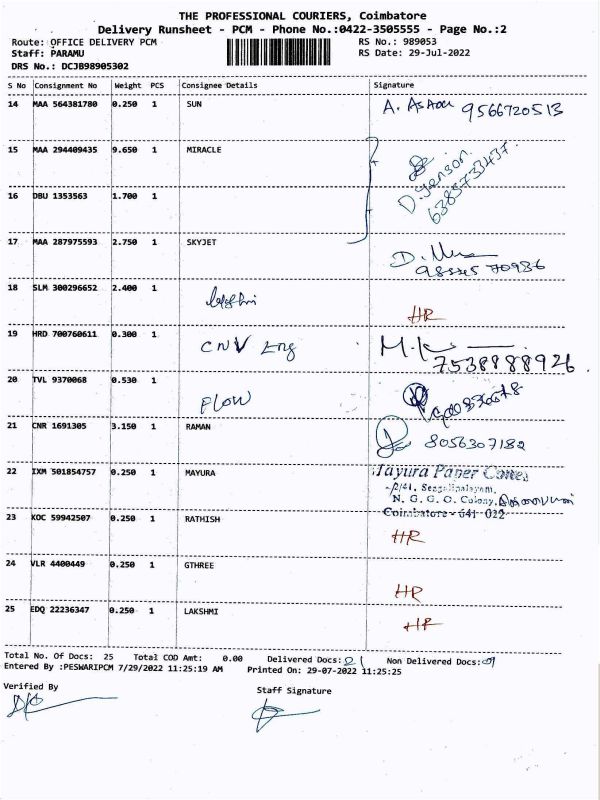 THE PROFESSIONAL COURIERS, Coimbatore
Delivery Runsheet - PCM - Phone No.:0422-3505555 - Page No.:2
Route: OFFICE DELIVERY PCM RS No.: 989053
Staff: PARAMU RS Date: 29-Jul-2022
DRS No.: DCJB98905302
S No Consignment No Weight PCS Consignee Details Signature
14 MAA 564381780 0.250 1 SUN A. 9566720513
15 MAA 294409435 9.650 1 MIRACLE
D. Jenson
6385733437
16 DBU 1353563 1.700 1
17 MAA 287975593 2.750 1 SKYJET D.
18 SLM 300296652 2.400 1
HR
19 HRD 700760611 0.300 1 CNV Eng M.K
7538888926
20 TVL 9370068 0.530 1 PLOW
21 CNR 1691305 3.150 1 RAMAN 8056307182
22 IXM 501854757 0.250 1 MAYURA Mayura Paper Cones
N. G. G. O. Colony,
Coimbatore - 641 022
23 KOC 59942507 0.250 1 RATHISH
HR
24 VLR 4400449 0.250 1 GTHREE
HR
25 EDQ 22236347 0.250 1 LAKSHMI
HR
Total No. Of Docs: 25 Total COD Amt: 0.00 Delivered Docs: Non Delivered Docs:
Entered By :PESWARIPCM 7/29/2022 11:25:19 AM Printed On: 29-07-2022 11:25:25
Verified By Staff Signature